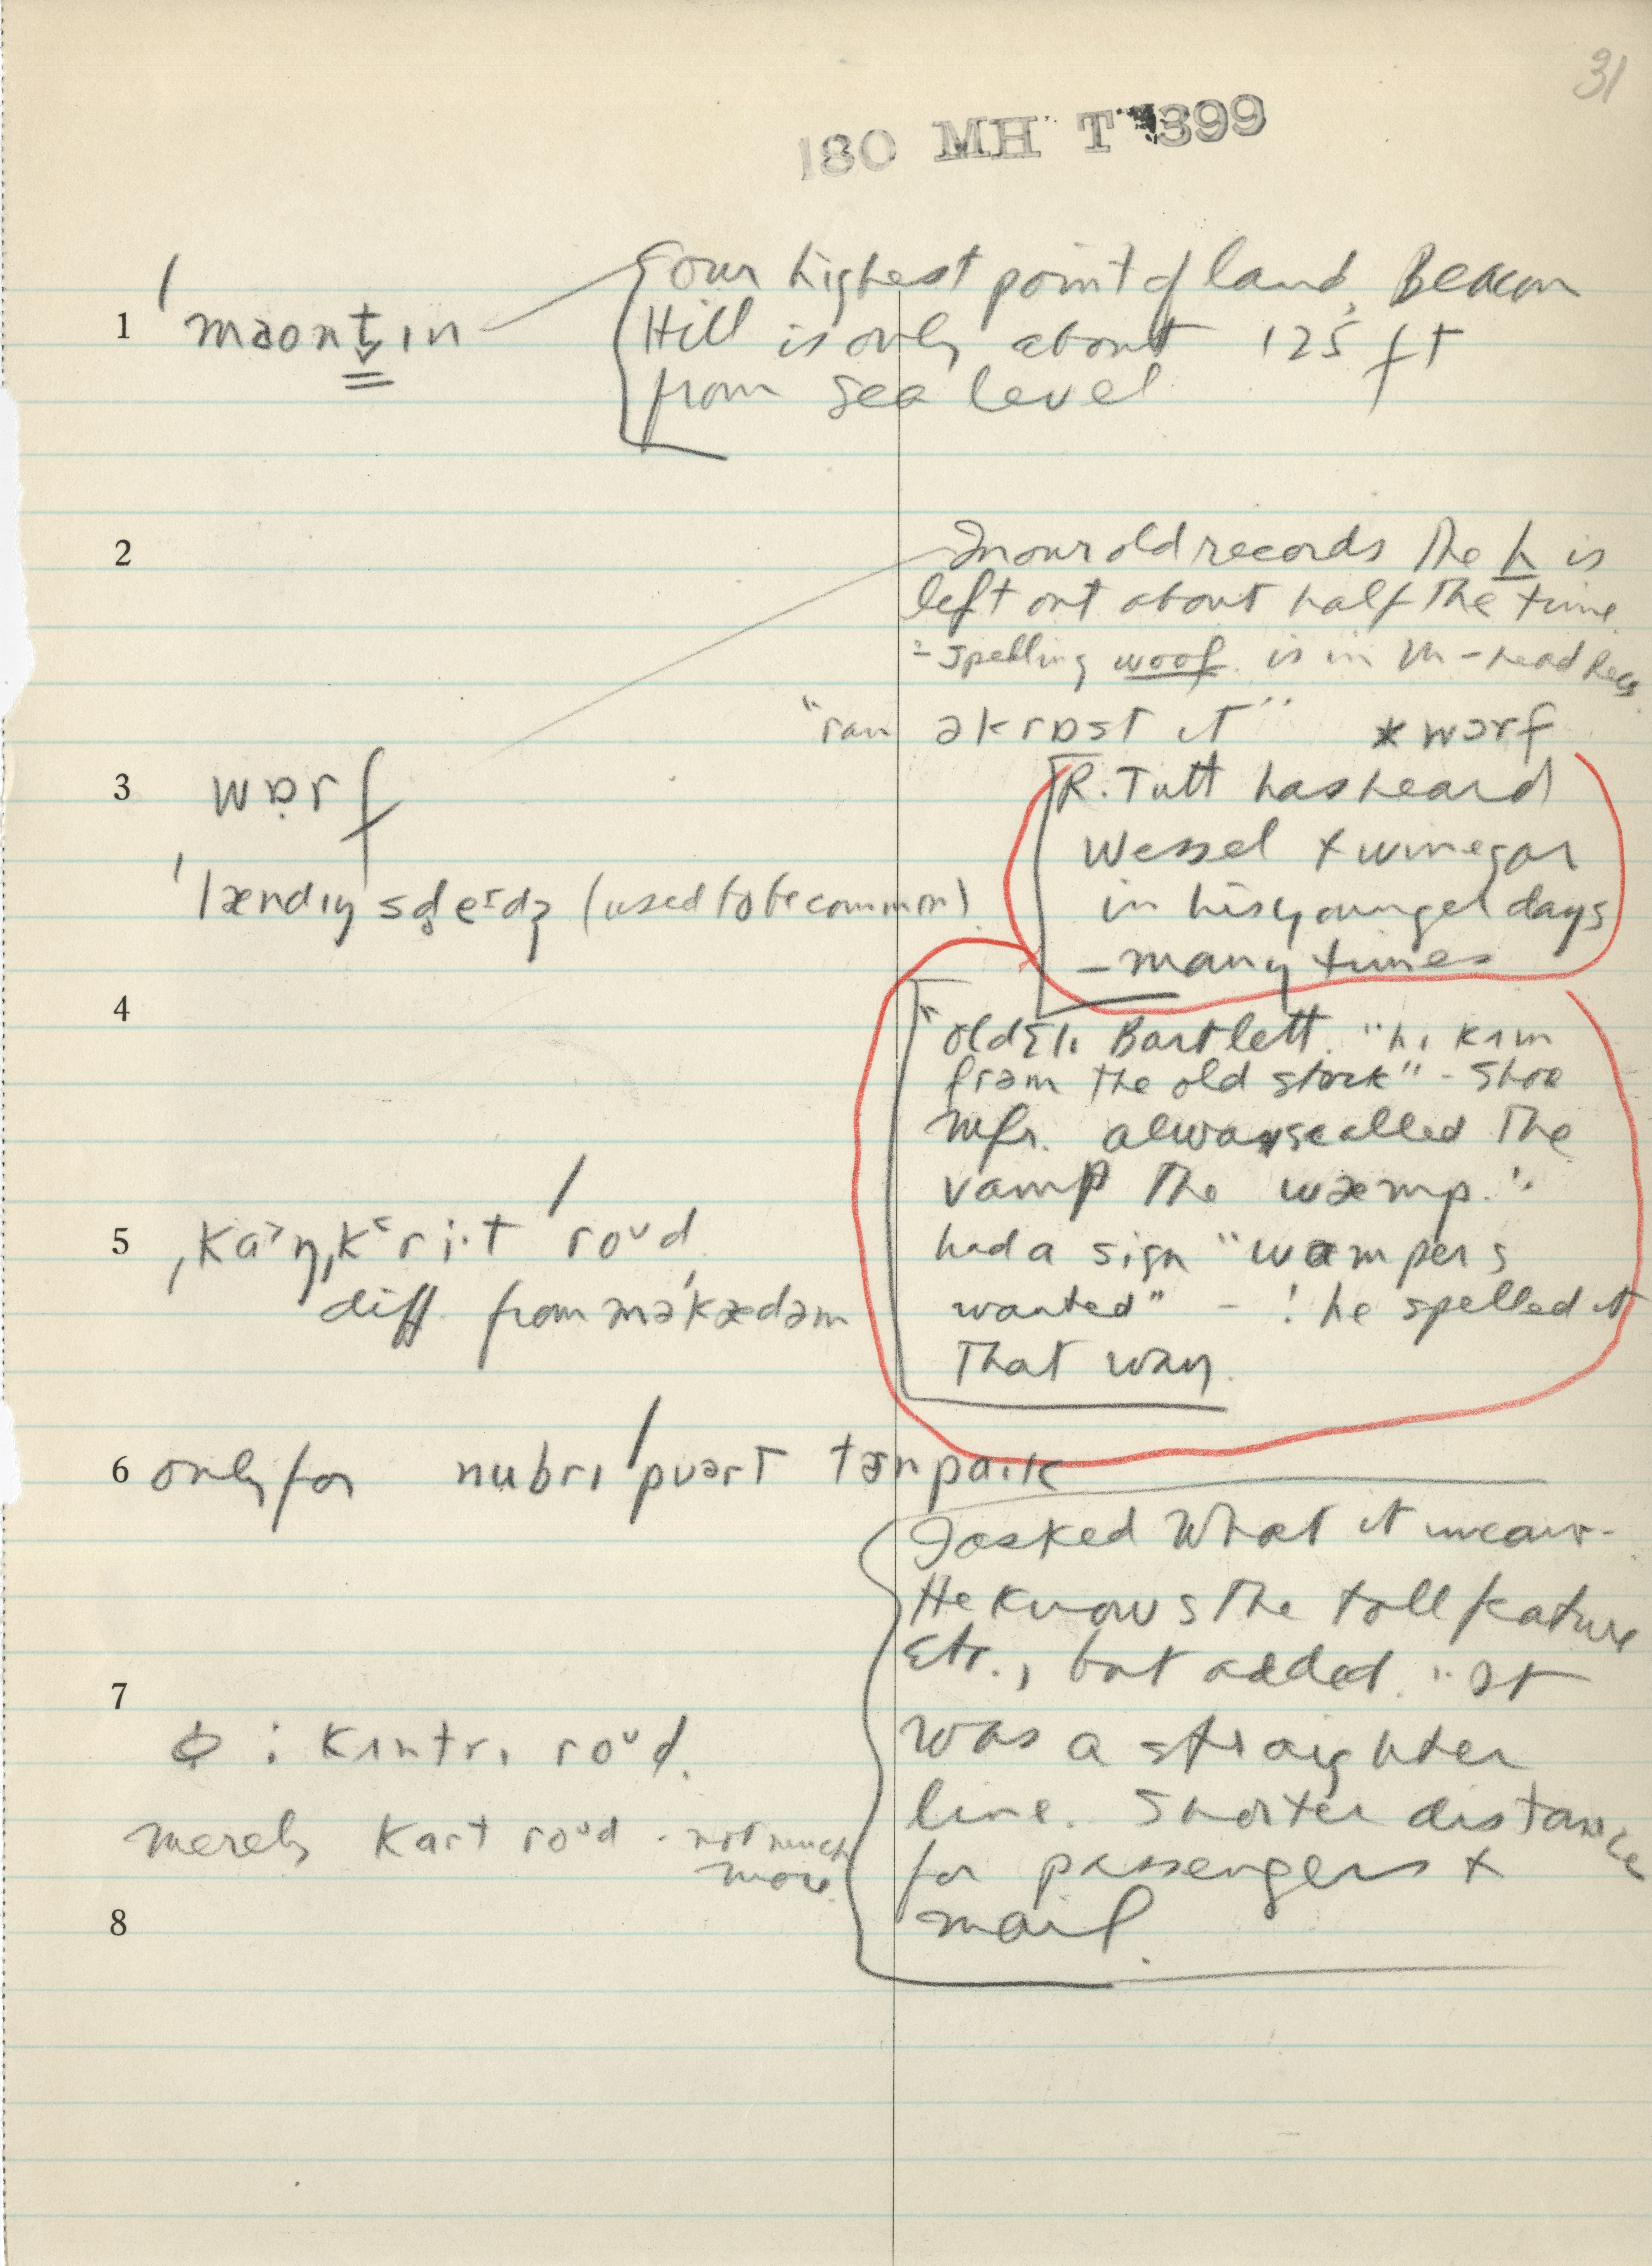 31
180 MH T 399
1 ˈmaʊntɪn
our highest point of land, Beacon
Hill is only about 125 ft
from sea level
2
In our old records the h is
left out about half the time
- spelling woof is in M-head
"ran əkrɒst it" * wɔrf
3 wɒrf
R. Tutt has heard
Wessel + winegar
in his younger days
- many times
ˈlændɪŋ (used to be common)
4
"old Eli Bartlett. "hɪ kɪm
frəm the old stock" - Shoe
Mfr. always called the
vamp the wæmp.
had a sign "wampers
wanted" - ! he spelled it
that way.
5 ˌkaᵊŋˌkri·t ˈroᵘd
diff. from məˈkædəm
6 only for nubrɪˈpuərt tɜrnpaɪk
I asked what it means -
He knows the toll feature
etc., but added. "It
was a straighter
line. Shorter distance
for passengers +
mail.
7
ϕ : kʌntrɪ roᵘd.
merely kart roᵘd - not much
more.
8